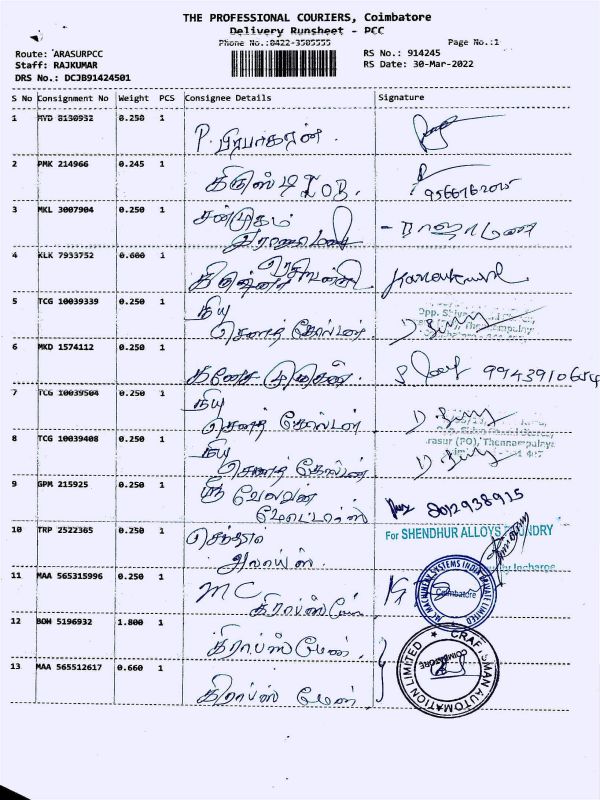 THE PROFESSIONAL COURIERS, Coimbatore
Delivery Runsheet - PCC
Phone No.:0422-3505555
Page No.:1
Route: ARASURPCC
RS No.: 914245
Staff: RAJKUMAR
RS Date: 30-Mar-2022
DRS No.: DCJB91424501
S No Consignment No Weight PCS Consignee Details Signature
1 HYD 8130932 0.250 1
P. பிரபாகரன்.
2 PMK 214966 0.245 1
கிருஸ்டி IOB.
9566762015
3 MKL 3007904 0.250 1
சண்முகம்
- ராஜாமணி
4 KLK 7933752 0.600 1
5 TCG 10039339 0.250 1
நியூ
6 MKD 1574112 0.250 1
கணேச முருகன்.
7 TCG 10039504 0.250 1
நியூ
8 TCG 10039408 0.250 1
நியூ
9 GPM 215925 0.250 1
ஸ்ரீ வேலவன்
மோட்டார்ஸ்
8012938915
10 TRP 2522365 0.250 1
செந்தூர்
அலாய்ஸ்.
For SHENDHUR ALLOYS
11 MAA 565315996 0.250 1
MC
MC MACHINERY SYSTEMS INDIA PRIVATE LIMITED
Coimbatore
12 BOM 5196932 1.800 1
கிராப்ஸ்மேன்.
13 MAA 565512617 0.660 1
கிராப்ஸ் மேன்
CRAFTSMAN AUTOMATION LIMITED
COIMBATORE